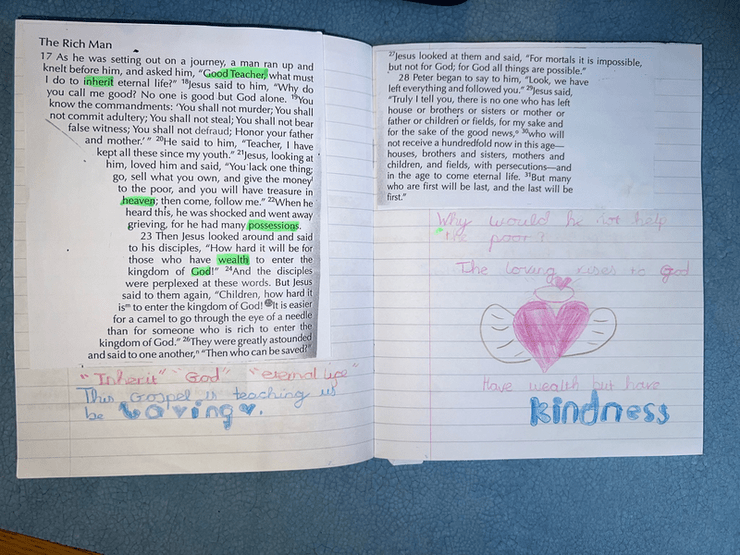 The Rich Man
17 As he was setting out on a journey, a man ran up and
knelt before him, and asked him, “Good Teacher, what must
I do to inherit eternal life?” 18Jesus said to him, “Why do
you call me good? No one is good but God alone. 19You
know the commandments: ‘You shall not murder; You shall
not commit adultery; You shall not steal; You shall not bear
false witness; You shall not defraud; Honor your father
and mother.’” 20He said to him, “Teacher, I have
kept all these since my youth.” 21Jesus, looking at
him, loved him and said, “You lack one thing;
go, sell what you own, and give the money
to the poor, and you will have treasure in
heaven; then come, follow me.” 22When he
heard this, he was shocked and went away
grieving, for he had many possessions.
23 Then Jesus looked around and said
to his disciples, “How hard it will be for
those who have wealth to enter the
kingdom of God!” 24And the disciples
were perplexed at these words. But Jesus
said to them again, “Children, how hard it
is to enter the kingdom of God! 25It is easier
for a camel to go through the eye of a needle
than for someone who is rich to enter the
kingdom of God.” 26They were greatly astounded
and said to one another, “Then who can be saved?”
"Inherit" "God" "eternal life"
This Gospel is teaching us
be Loving
27Jesus looked at them and said, “For mortals it is impossible,
but not for God; for God all things are possible.”
28 Peter began to say to him, “Look, we have
left everything and followed you.” 29Jesus said,
“Truly I tell you, there is no one who has left
house or brothers or sisters or mother or
father or children or fields, for my sake and
for the sake of the good news, 30who will
not receive a hundredfold now in this age—
houses, brothers and sisters, mothers and
children, and fields, with persecutions—and
in the age to come eternal life. 31But many
who are first will be last, and the last will be
first.”
Why would he not help
the poor?
The loving rises to God
Have wealth but have
kindness